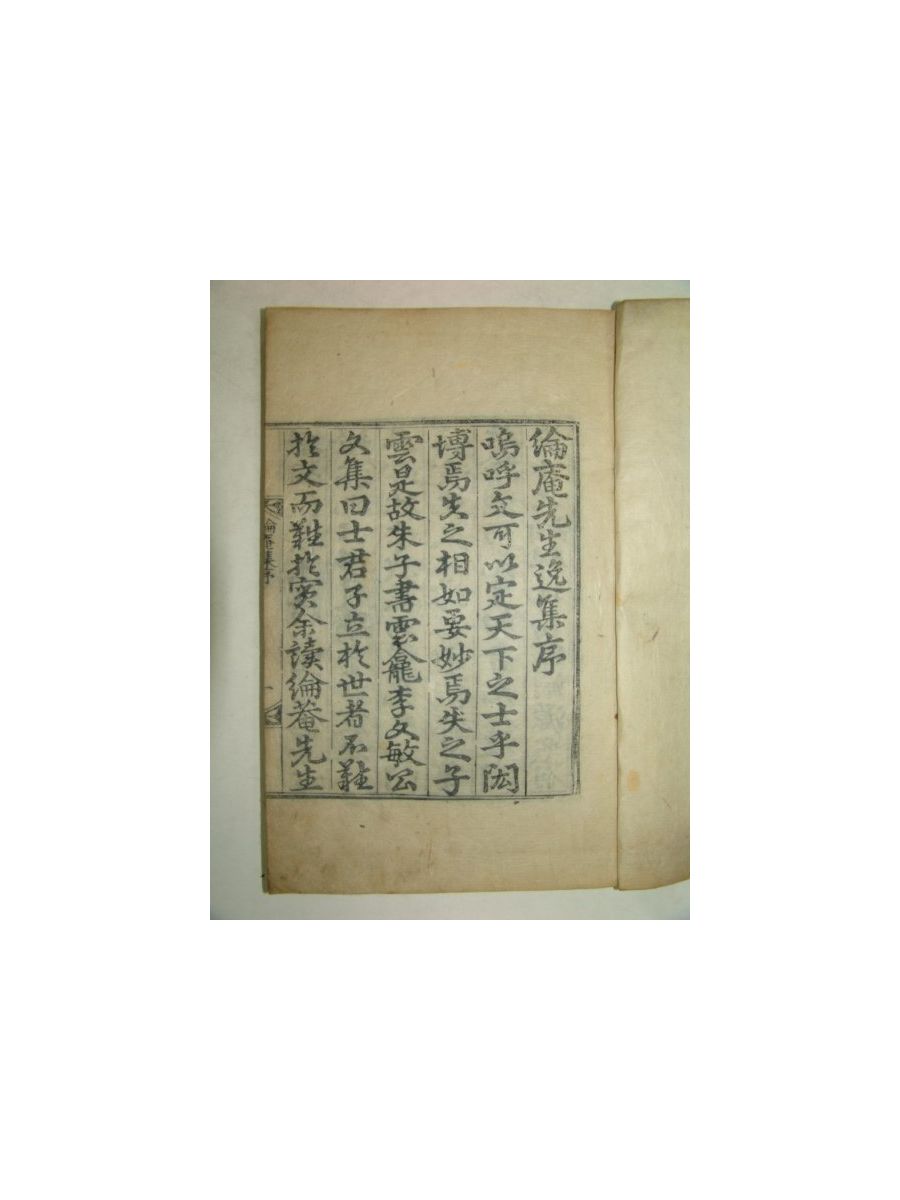 綸庵先生逸集序
嗚呼文可以定天下之士乎閎
博焉失之相如要妙焉失之子
雲是故朱子書雲龕李文敏公
文集曰士君子立於世者不難
於文而難於實余讀綸菴先生
綸庵集序
一